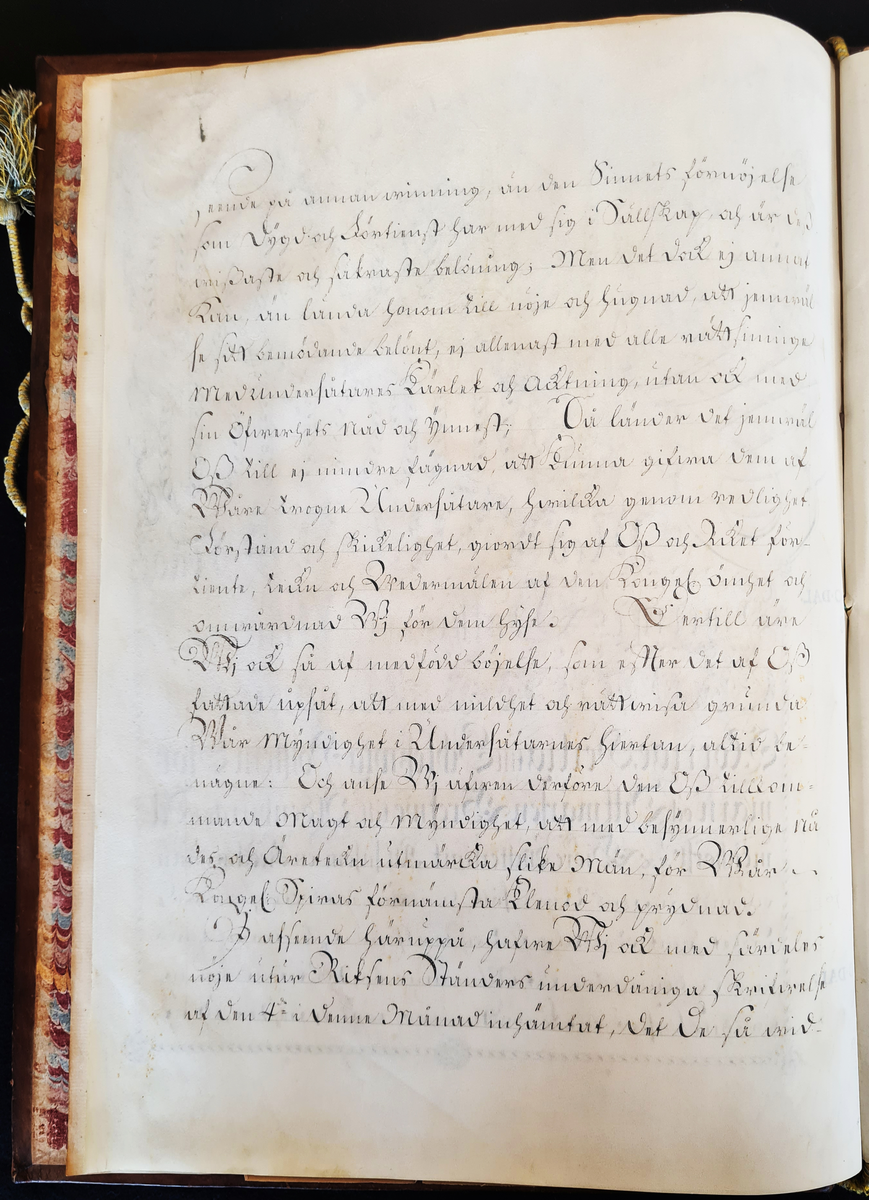 seende på annan winning, än den Sinnets förnöjelse
som Dygd och Förtienst har med sig i Sällskap och är des
wißaste och säkraste belöning; Men det dock ej annat
kan, än lända honom till nöje och hugnad, att jemwäl
se sitt bemödande belönt, ej allenast med alle rättsinnige
Medundersåtares Kärlek och Acktning, utan ock med
sin Öfwerhets Nåd och Ynnest; Så länder det jemwäl
Oß till ej mindre fägnad, att kunna gifwa dem af
Wåre trogne Undersåtare, hwilcka genom redlighet
Förstånd och skickelighet, giordt sig af Oß och Riket för-
tiente, teckn och Wedermälen af den Kongel. ömhet och
omwårdnad Wj för dem hyse. Och ertill äre
Wj ock så af medfödd böjelse, som efter det af Oß
fattade upsåt, att med mildhet och rättwisa grunda
Wår Myndighet i Undersåtarnes hiertan, altid be-
nägne: Och anse Wj äfwen derföre den Oß tillkom-
mande Magt och Myndighet, att med besynnerlige Nå
des och Äreteckn utmärcka slike Män, för Wår
Kongel. Spiras förnämsta Klenod och prydnad.
I afseende häruppå, hafwe Wj ock med särdeles
nöje utur Riksens Ständers underdåniga skrifwelse
af den 4de i denne Månad inhämtat, det De så wid